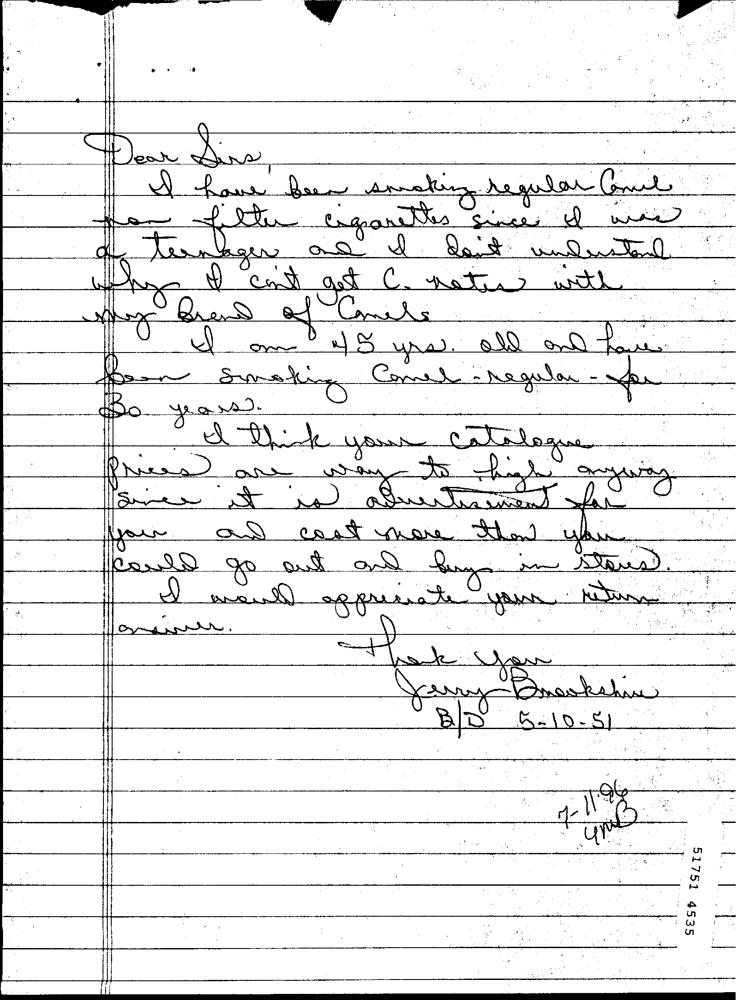 Dear Sirs,
I have been smoking regular Camel
non filter cigarettes since I was
a teenager and I don't understand
why I can't get C. notes with
my Brand of Camels
I am 45 yrs. old and have
been smoking Camel - regular - for
30 years.
I think your catalogue
prices are way to high anyway
since it is advertisement for
you and cost more than you
could go out and buy in stores.
I would appreciate your return
answer.
Thank You
Jerry Brookshire
B/D 5-10-51
7-11-96
51751 4535